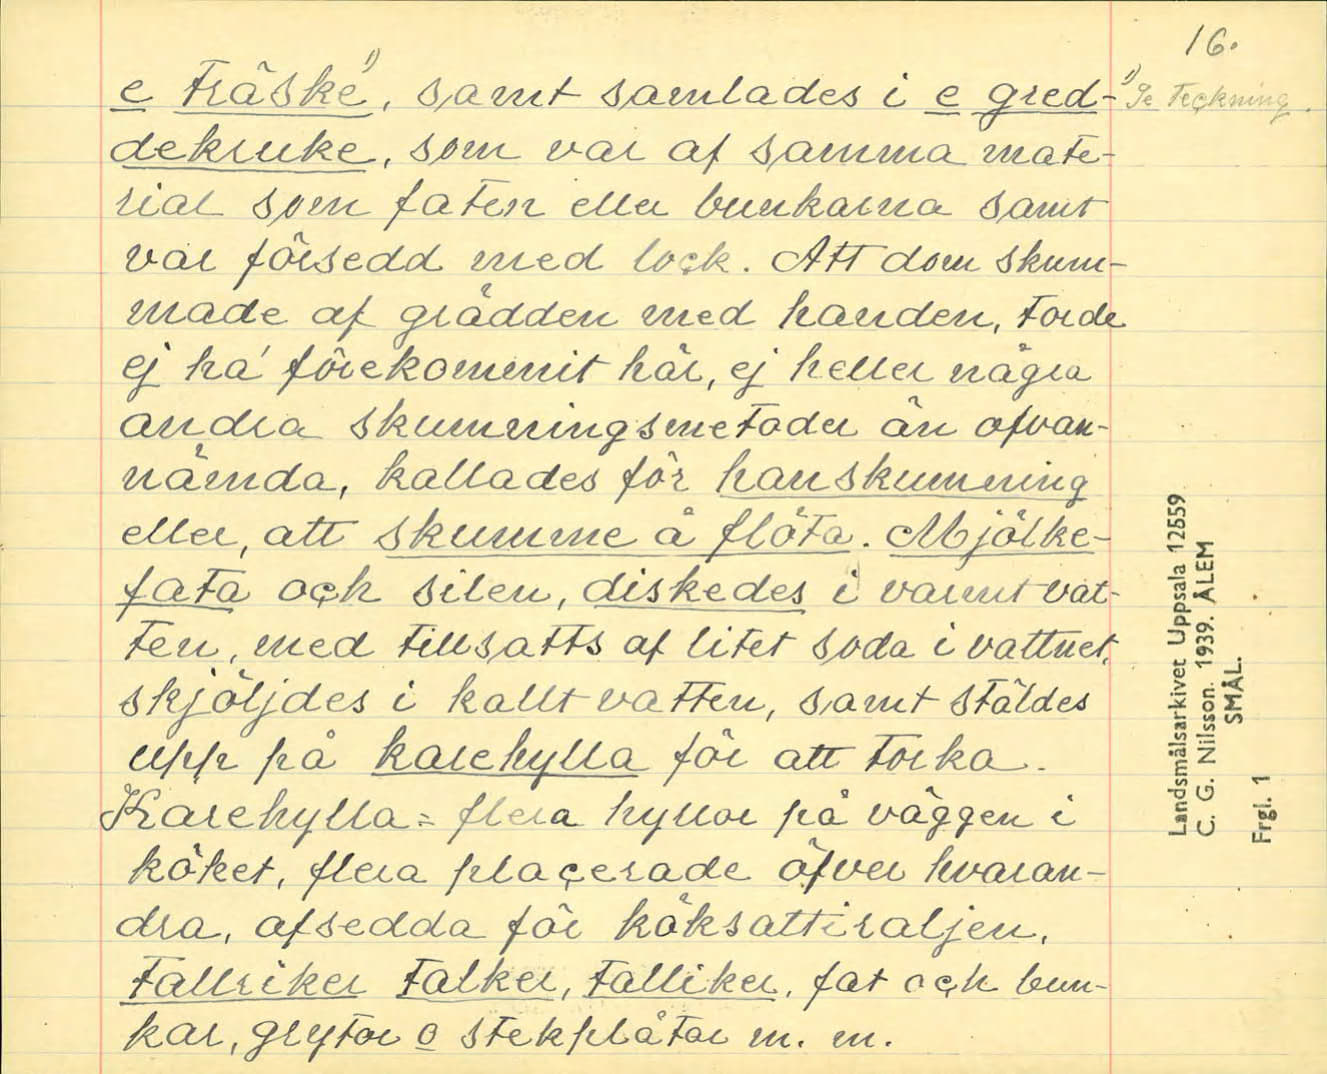 16.
e träské¹⁾, samt samlades i e gred- ¹⁾Se teckning.
dekruke, som var af samma mate-
rial som faten eller bunkarna samt
var försedd med lock. Att dom skum-
made af grädden med handen, torde
ej ha' förekommit här, ej heller några
andra skumningsmetoder än ofvan-
nämda, kallades för hanskumning
eller, att skumme å flöta. Mjölke-
fata och silen, diskedes i varmt vat-
ten, med tillsatts af litet soda i vattnet,
skjöljdes i kallt vatten, samt stäldes
upp på karehylla för att torka.
Karehylla = flera hyllor på väggen i
köket, flera placerade öfver hvaran-
dra, afsedda för köksattiraljen.
Tallriker talker, talliker, fat och bun-
kar, grytor o stekplåtar m. m.
Landsmålsarkivet Uppsala 12559
C. G. Nilsson. 1939. ÅLEM
SMÅL.
Frgl. 1